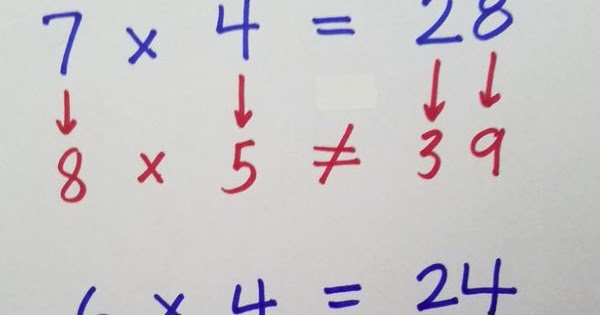 7 × 4 = 28
↓ ↓ ↓ ↓
8 × 5 ≠ 39
6 × 4 = 24